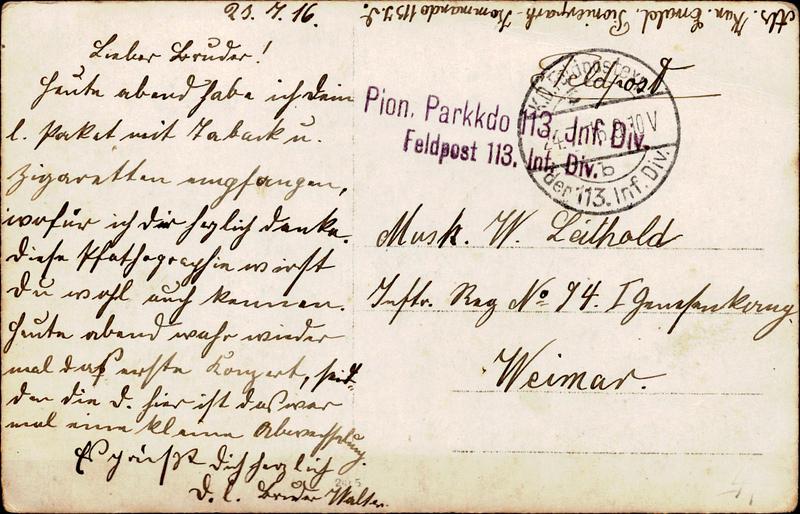 23.7.16.
Lieber Bruder!
Heute abend habe ich dein
l. Paket mit Taback u.
Zigaretten empfangen,
wofür ich dir herzlich danke.
Diese Phathographie wirst
du wohl auch kennen.
Heute abend wahr wieder
mal das erste Konzert, seit
dem die d. hier ist das war
mal eine kleine Abwechslung.
Es grüßt dich herzlich
D. l. Bruder Walter.
Abs. Kan. Ewald, Pionierpark-Kommando 113 J.D.
Feldpost
Pion. Parkkdo 113. Inf. Div.
Feldpost 113. Inf. Div.
K.D. Feldpostexp.
24. 16 10 V
b
der 113. Inf. Div.
Musk. W. Leithold
Inftr. Reg No 94. I Genesenkomp.
Weimar.